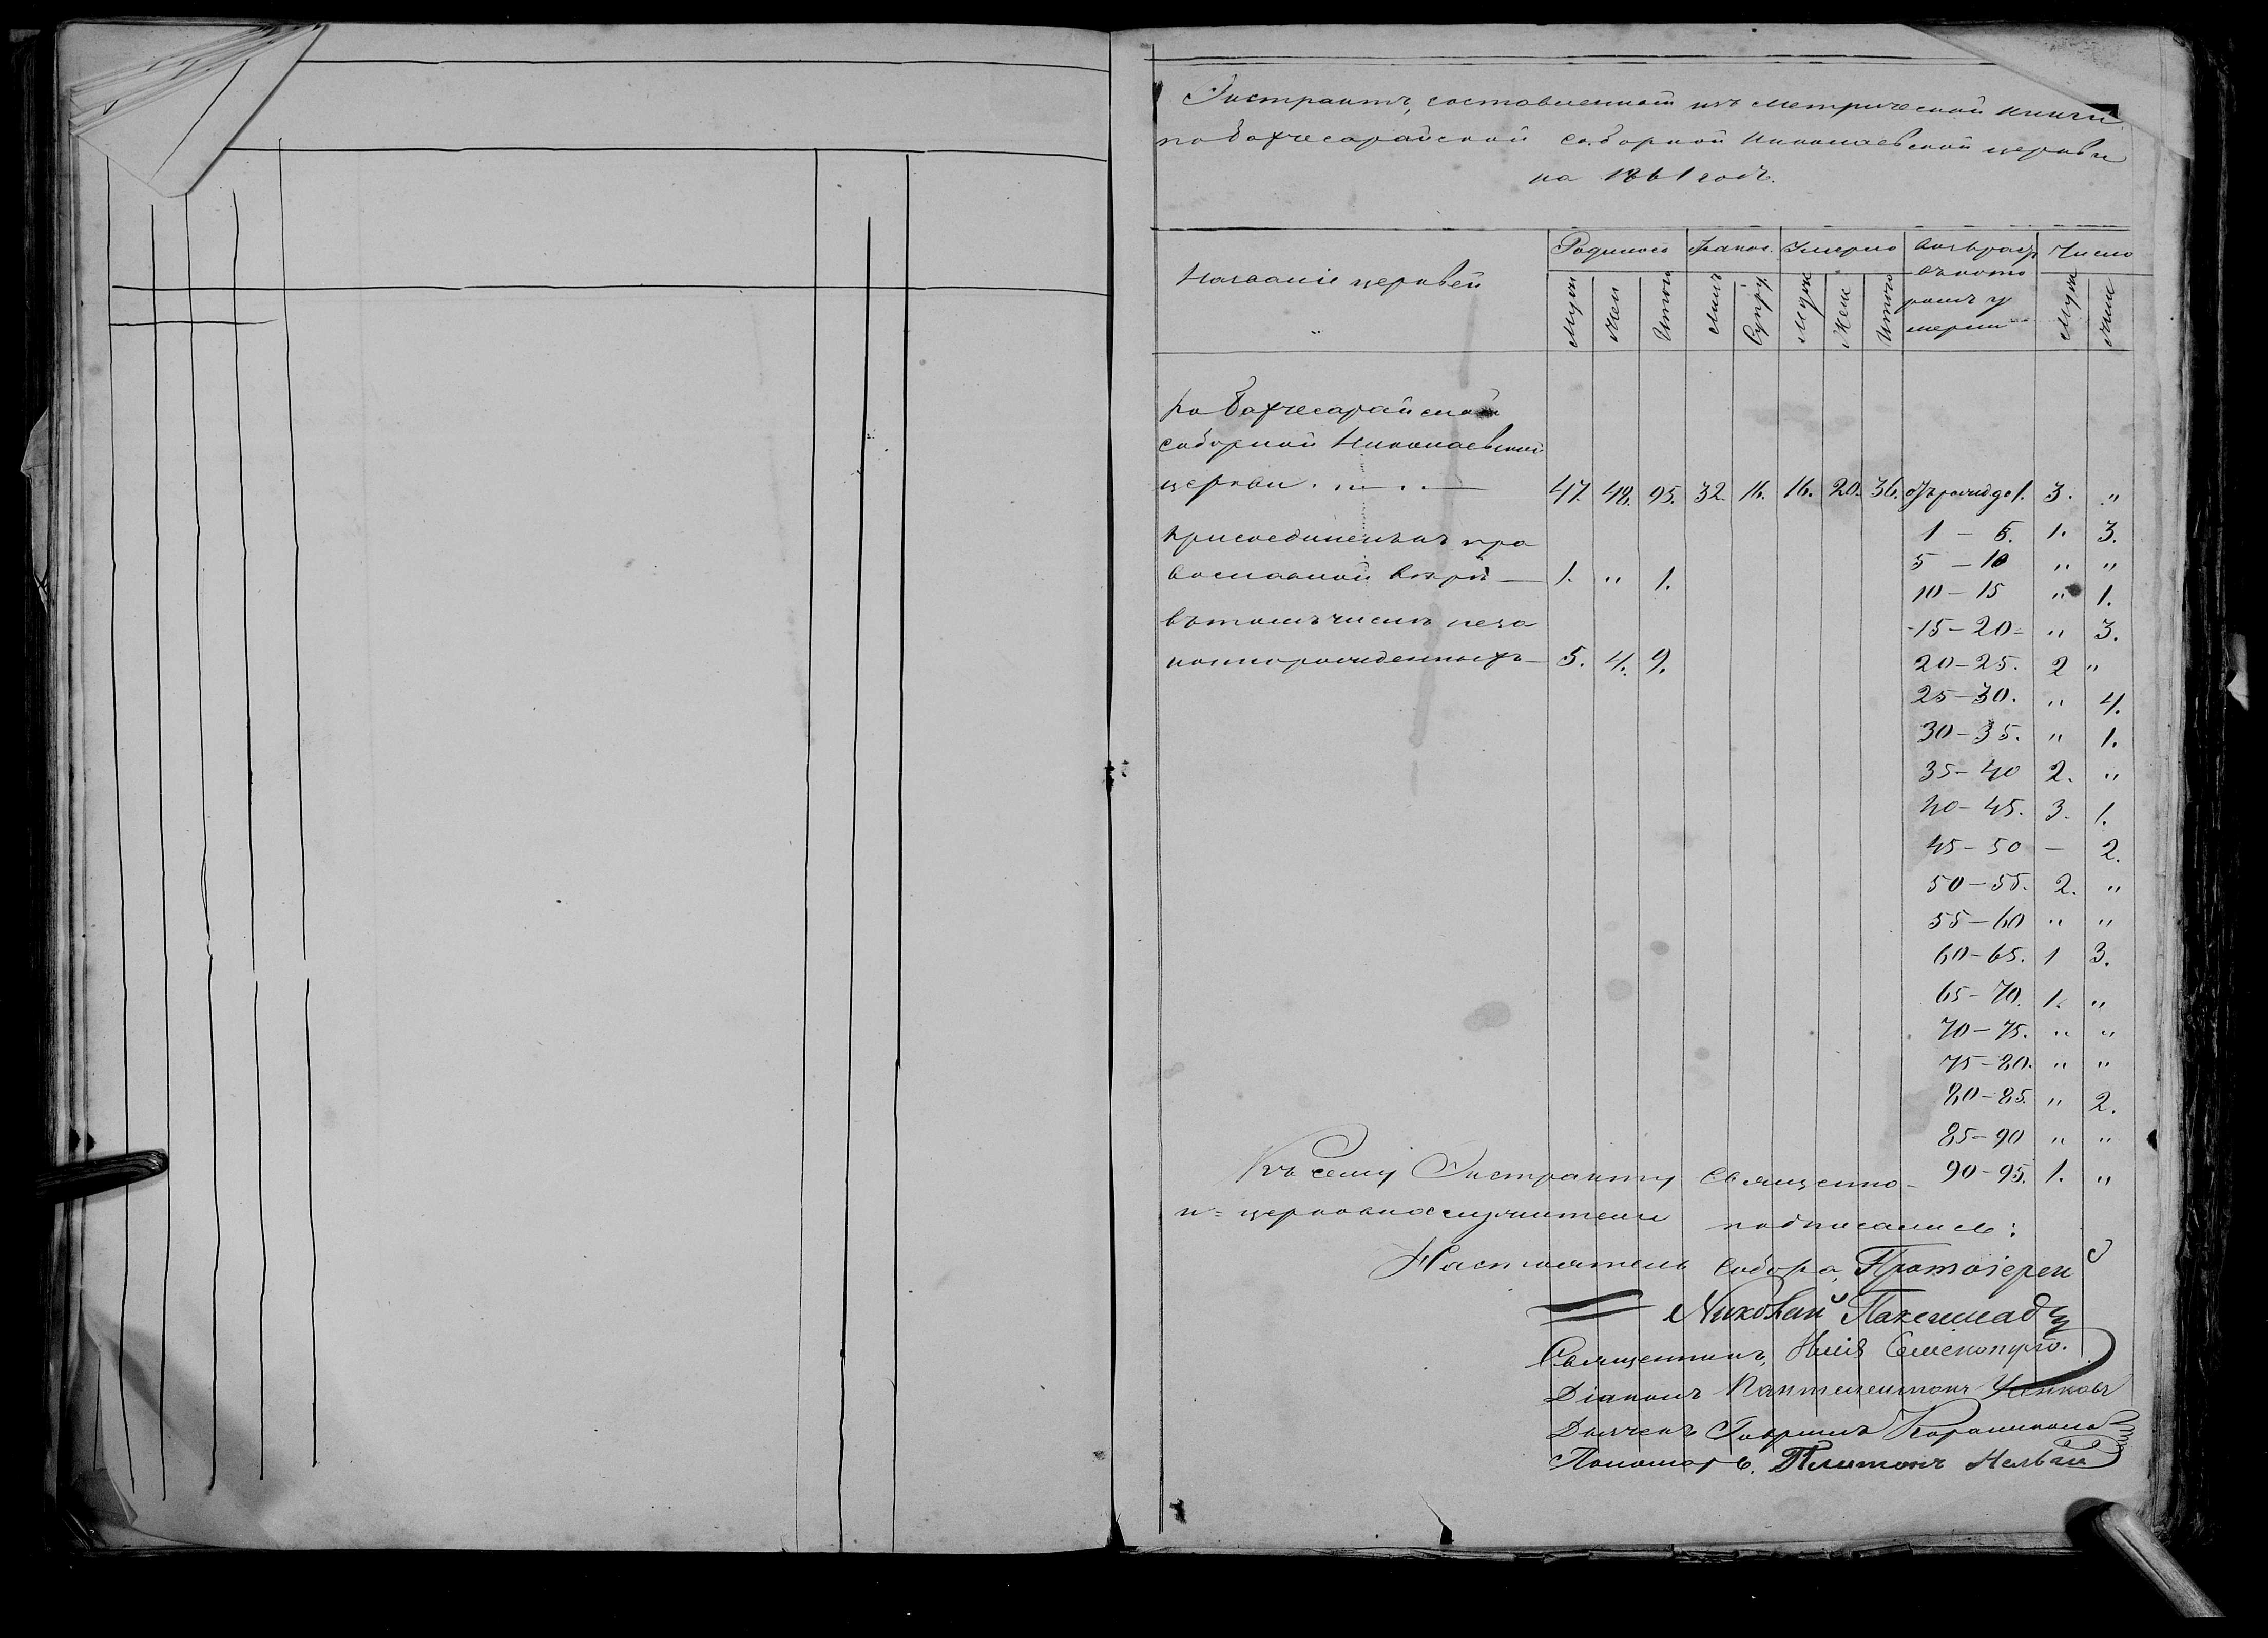 Экстрактъ, составленный изъ метрической книги
по Бахчесарайской соборной Николаевской церкви
на 1861 годъ.
Названіе церквей
Родилось
Бракос.
Умерло
Возрастъ въ которомъ умерли
Число
Муж
Жен
Итого
Лицъ
Супру
Муж
Жен
Итого
Муж
Жен
по Бахчесарайской
соборной Николаевской
церкви 47. 48. 95. 32. 16. 16. 20. 36. отъ рожд до 1. 3. "
1 – 5. 1. 3.
присоединенных пра
5 – 10 " "
вославной вѣрѣ — 1. " 1.
10 – 15 " 1.
въ томъ числѣ неза
15 – 20 – " 3.
коннорожденныхъ – 5. 4. 9.
20 – 25. 2 "
25 – 30. " 4.
30 – 35. " 1.
35 – 40 2. "
40 – 45. 3. 1.
45 – 50 – 2.
50 – 55. 2. "
55 – 60 " "
60 – 65. 1 3.
65 – 70. 1. "
70 – 75. " "
75 – 80. " "
80 – 85. " 2.
85 – 90 " "
90 – 95. 1. "
Къ сему Экстракту Священно-
и = церковнослужители подписались:
Настоятель Собора, Протоіерей
Николай
Священникъ,
Діаконъ Пантелеимонъ
Дьячекъ Гавріилъ
Пономарь Платонъ